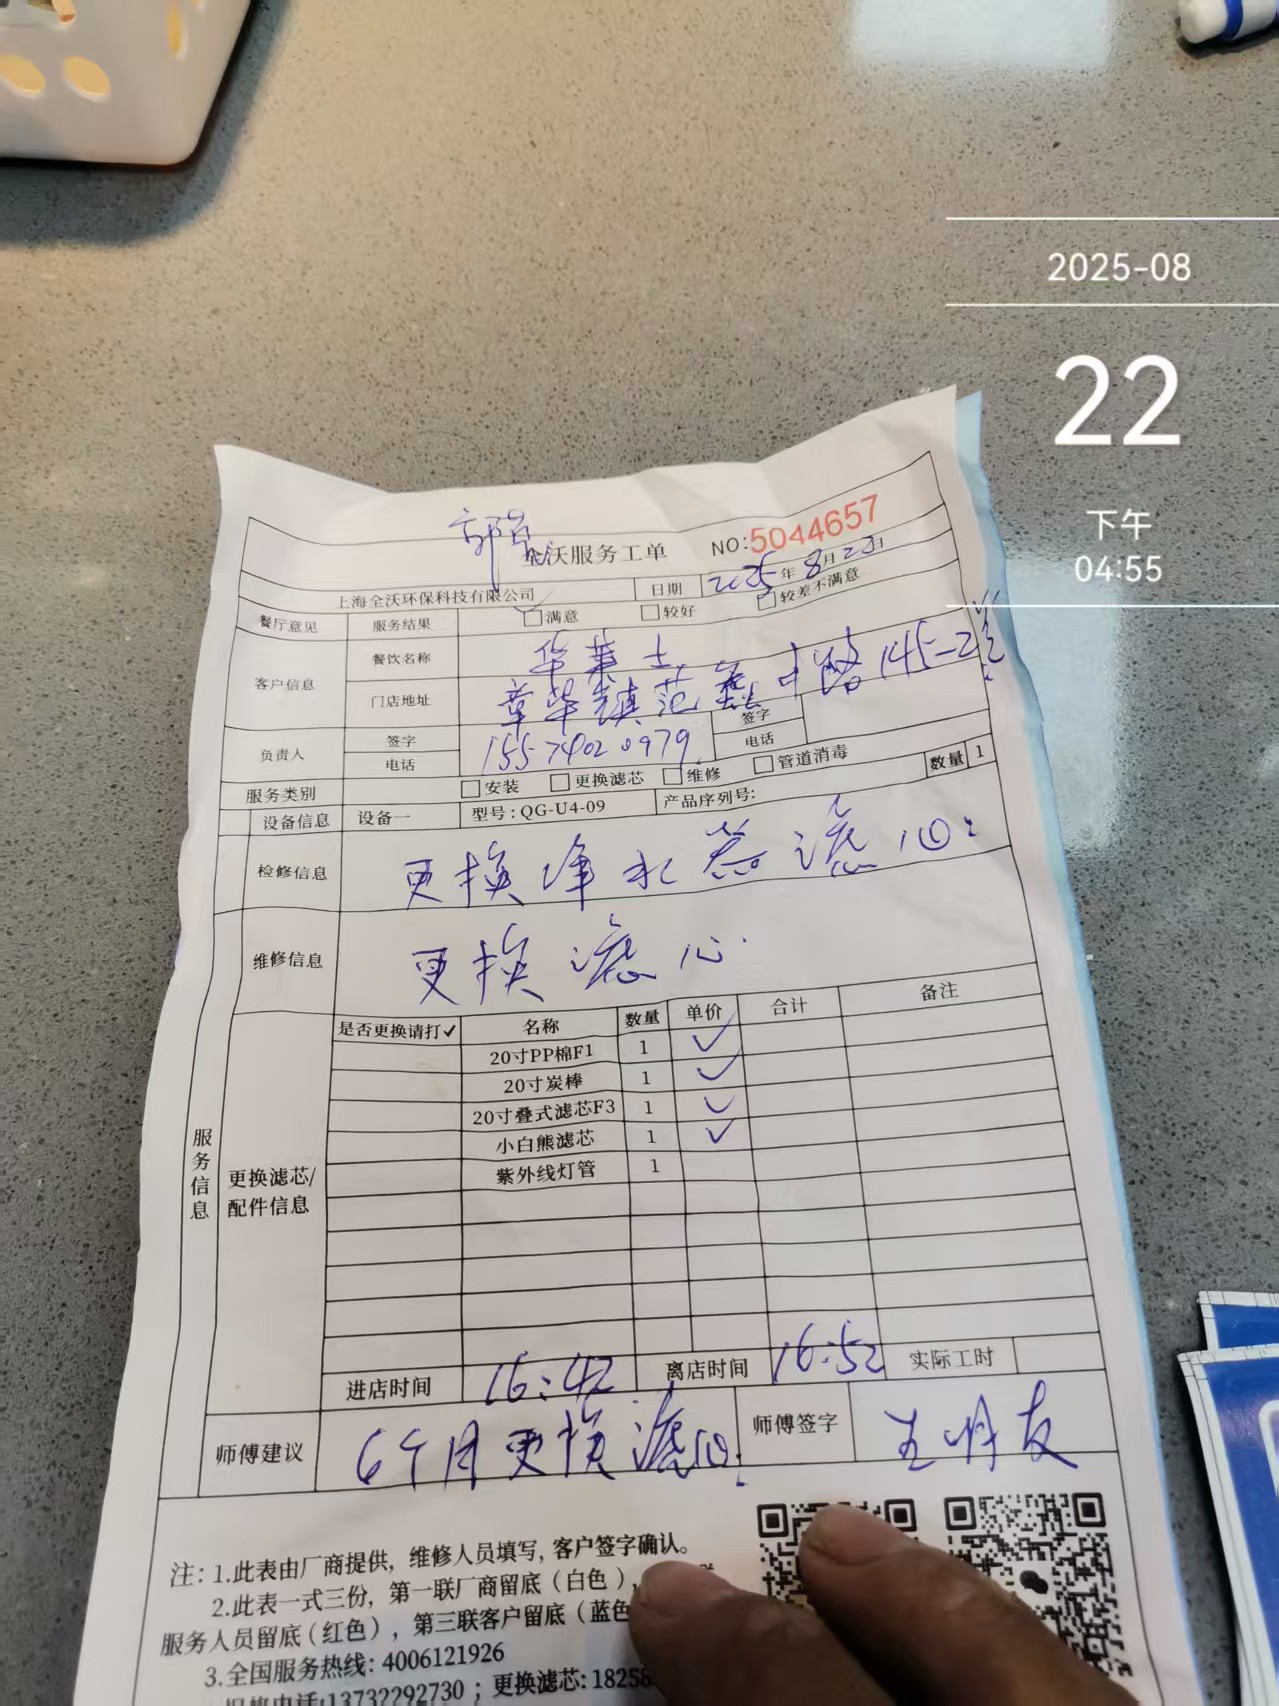 2025-08
22
下午
04:55
全沃服务工单 NO:5044657
上海全沃环保科技有限公司 日期 2025年8月22日
餐厅意见 服务结果 满意 较好 较差不满意
客户信息 餐饮名称 华莱士
门店地址 章华镇范蠡中路145-2
负责人 签字 签字
电话 15574020979 电话
服务类别 安装 更换滤芯 维修 管道消毒
设备信息 设备一 型号:QG-U4-09 产品序列号: 数量 1
检修信息 更换净水器滤心
维修信息 更换滤心
是否更换请打✓ 名称 数量 单价 合计 备注
20寸PP棉F1 1 ✓
20寸炭棒 1 ✓
20寸叠式滤芯F3 1 ✓
小白熊滤芯 1 ✓
紫外线灯管 1
服务信息
更换滤芯/
配件信息
进店时间 16:42 离店时间 16:52 实际工时
师傅建议 6个月更换滤心 师傅签字 王明友
注: 1.此表由厂商提供, 维修人员填写, 客户签字确认。
2.此表一式三份, 第一联厂商留底（白色）,
服务人员留底（红色）, 第三联客户留底（蓝色
3.全国服务热线: 4006121926
报修电话:13732292730 ; 更换滤芯: 18258